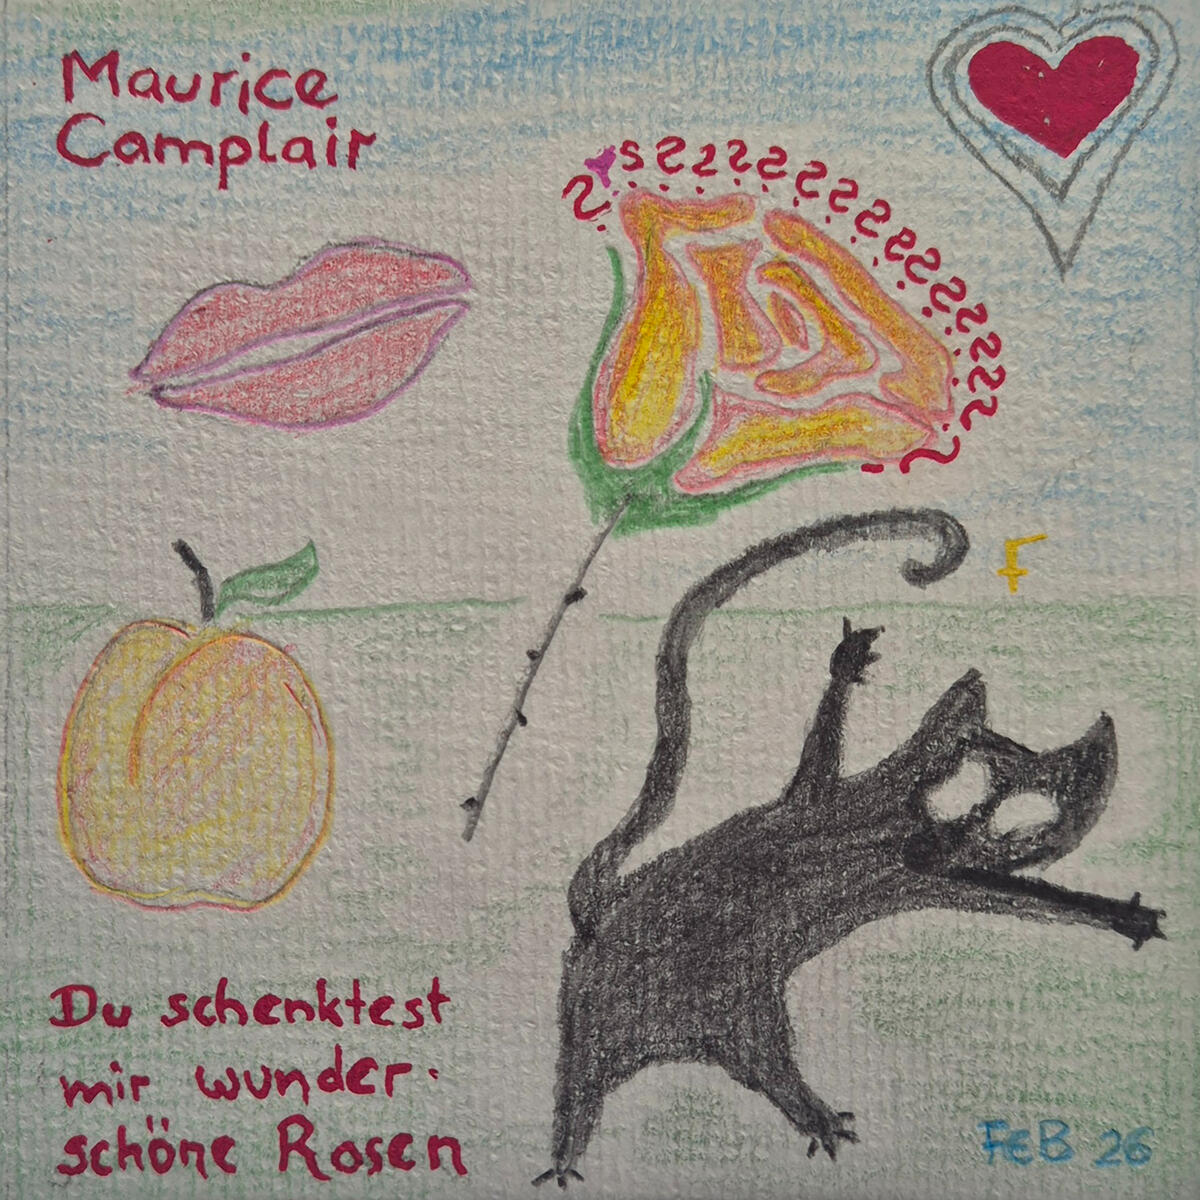 Maurice
Camplair
F
Du schenktest
mir wunder-
schöne Rosen
FEB 26